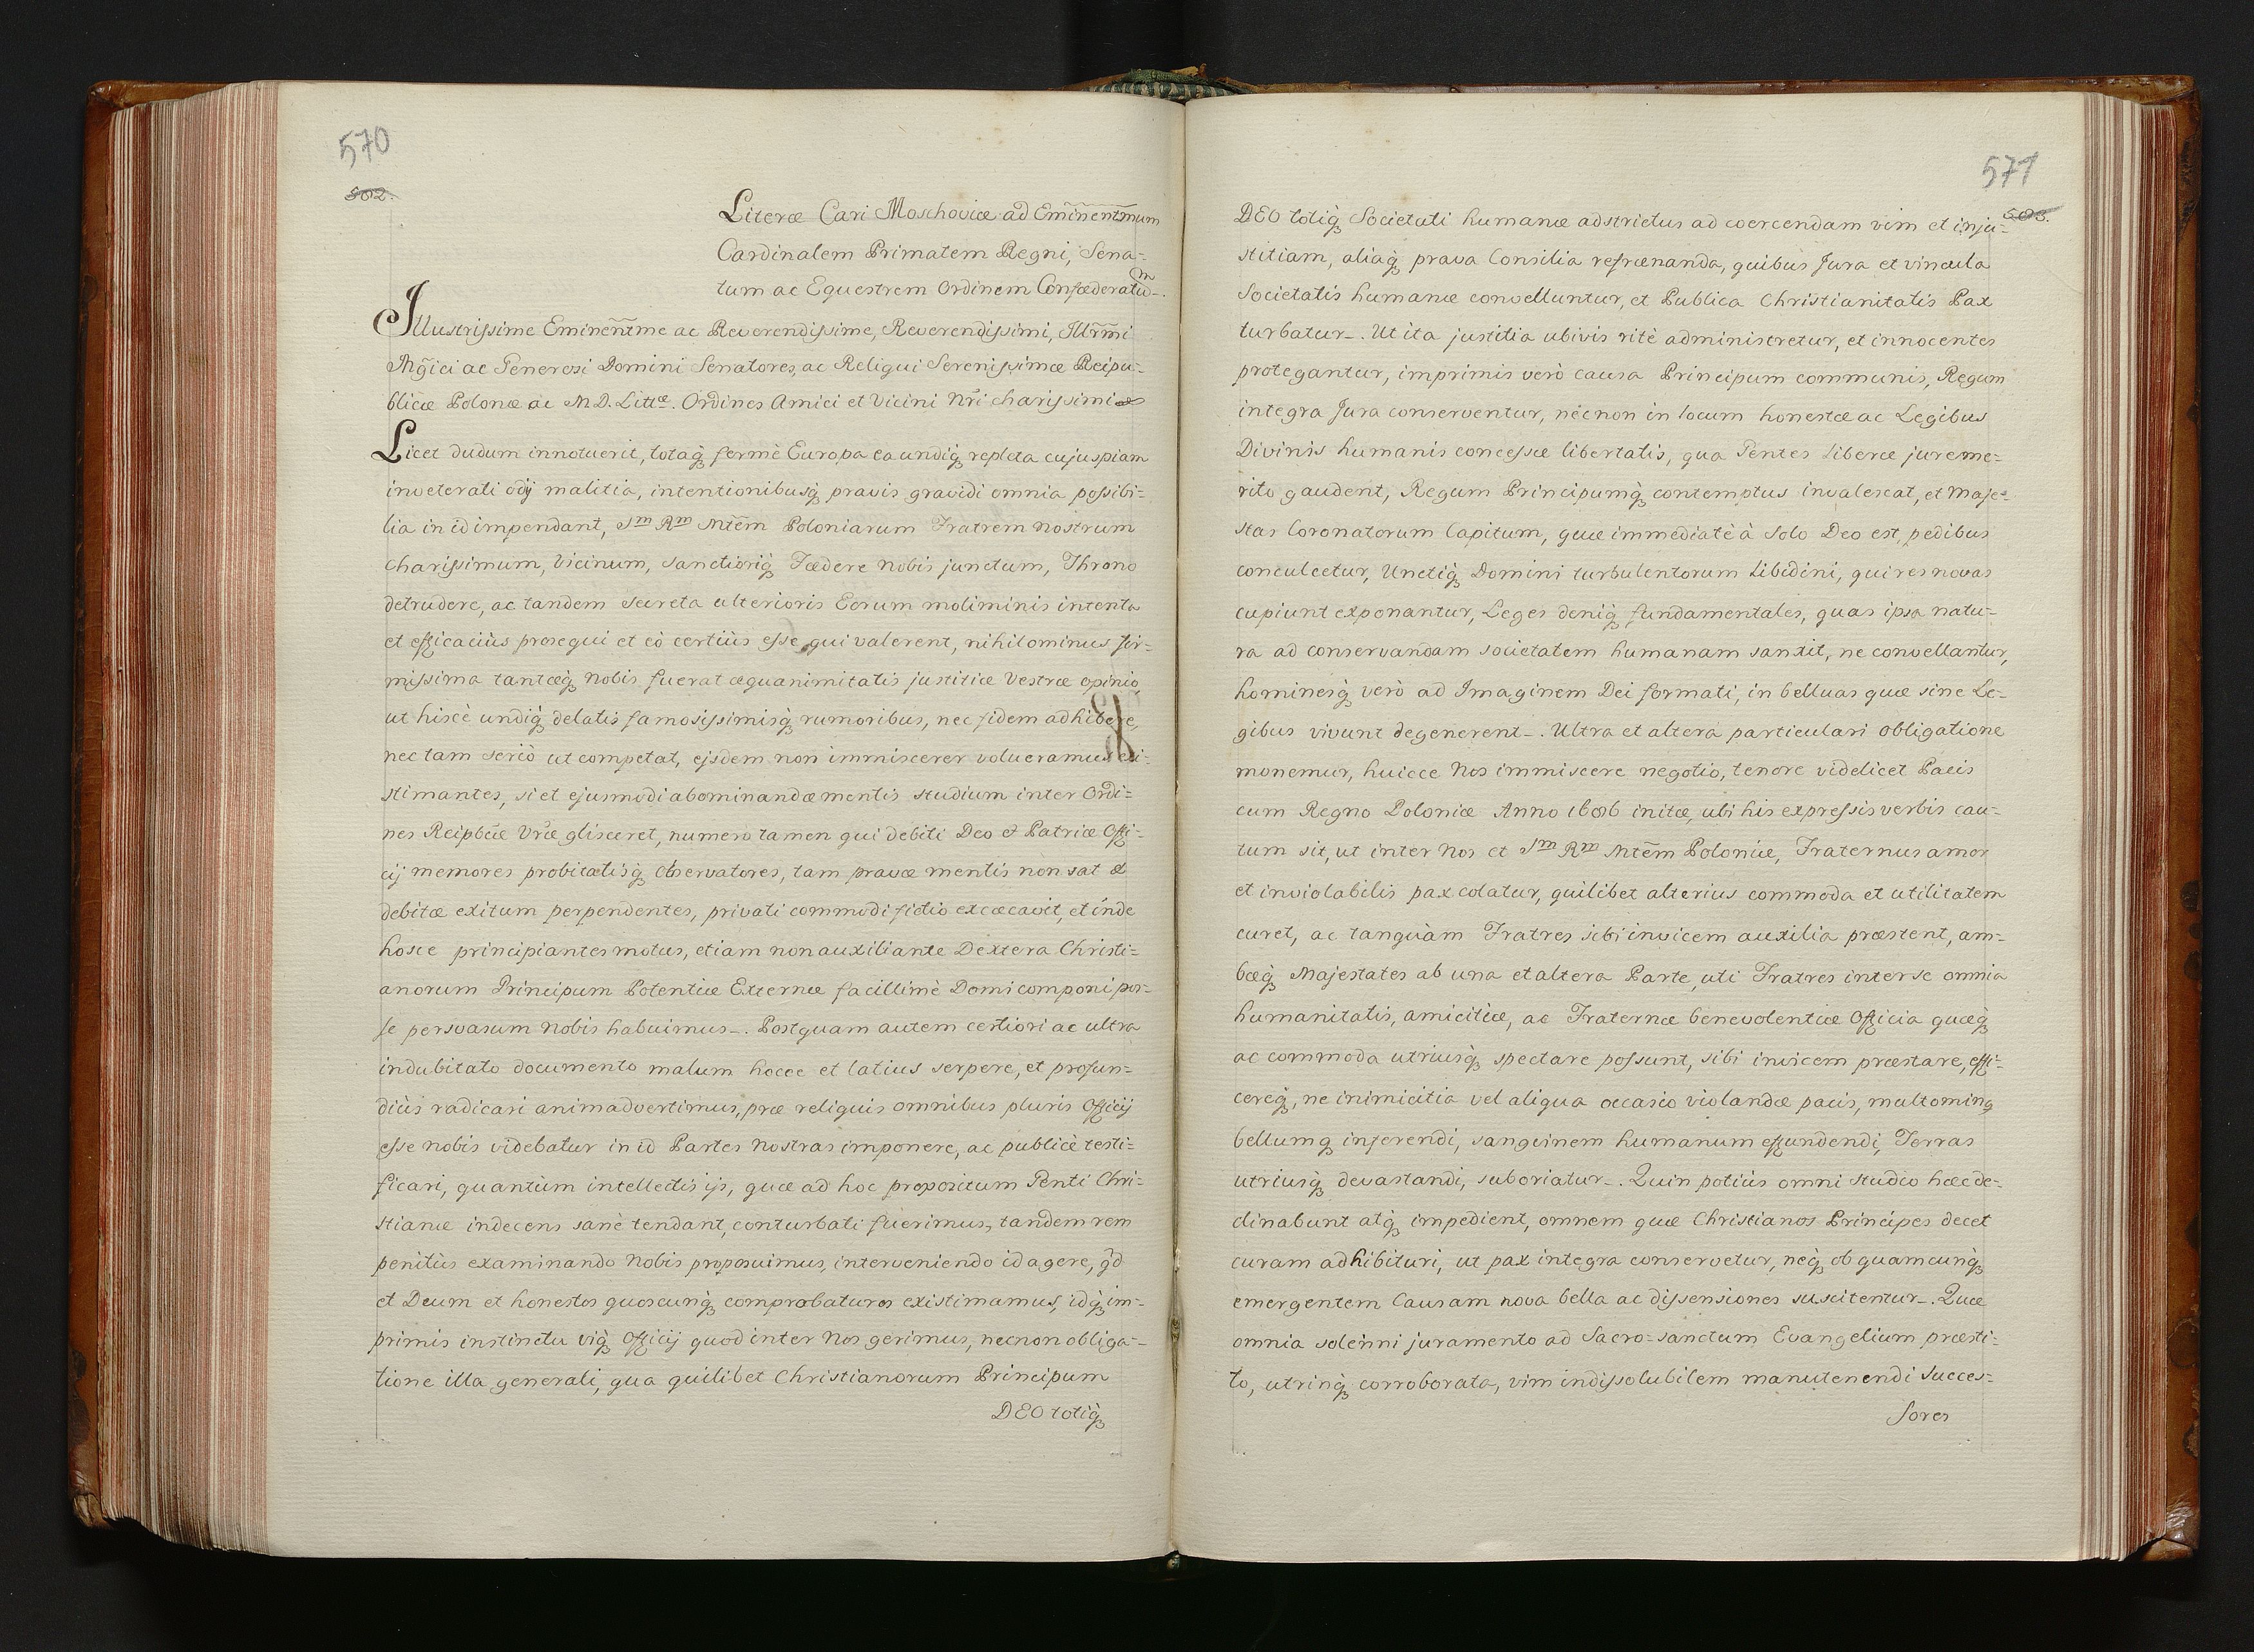 570
502.
Literæ Cari Moschoviæ ad Emĩnentm̃um
Cardinalem Primatem Regni, Sena=
tum ac Equestrem Ordinem Confœderatũ.
Illustrissime Eminẽntme ac Reverendissime, Reverendissimi, Illr̃mi
Mg̃ici ac Generosi Domini Senatores, ac Religui Serenissimæ Reipu=
blicæ Polonæ ac M. D. Littæ. Ordines Amici et Vicini Nr̃i charissimi
Licet dudum innotuerit, totaq́ȝ fermè Europa ea undiq́ȝ repleta cujuspiam
inveterati odij malitia, intentionibusq́ȝ pravis gravidi omnia possibi=
lia in id impendant, Sm Rm Mtẽm Poloniarum Fratrem nostrum
charissimum, Vicinum, sanctioriq́ȝ Fœdere nobis junctum, Throno
detrudere, ac tandem secreta ulterioris Eorum moliminis intenta
et efficaciùs prosequi et eò certiùs esse qui valerent, nihilominus fir=
missima tantæq́ȝ nobis fuerat æquanimitatis justitiæ Vestræ opinio,
ut hiscè undiq́ȝ delatis famosissimisq́ȝ rumoribus, nec fidem adhibere,
nec tam seriò ut competat, ejsdem non immiscerer volueramus exi=
stimantes, si et ejusmodi abominandæ mentis studium inter Ordi=
nes Reipbcæ Vræ glisceret, numero tamen qui debiti Deo & Patriæ Offi=
cij memores probitatisq́ȝ observatores, tam pravæ mentis non sat &
debitæ exitum perpendentes, privati commodi fictio excæcavit, et inde
hosce principiantes motus, etiam non auxiliante Dextera Christi=
anorum Principum Potentiæ Externæ facillimè Domi componi pos=
se persvasum nobis habuimus. Postquam autem certiori ac ultra
indubitato documento malum hocce et latius serpere, et profun=
diùs radicari animadvertimus, præ reliquis omnibus pluris Officij
esse nobis videbatur in id Partes nostras imponere, ac publicè testi=
ficari, quantùm intellectis ijs, quæ ad hoc propositum Genti Chri=
stianæ indecens sanè tendant, conturbati fuerimus, tandem rem
penitùs examinando Nobis proposuimus, interveniendo id agere, qd́
et Deum et honestos quoscunq́ȝ comprobaturos existimamus, idq́ȝ im=
primis instinctu viq́ȝ Officij quod inter Nos gerimus, necnon obliga=
tione illa generali, qua quilibet Christianorum Principum
DEO totiq́ȝ
571
503.
DEO totiq́ȝ Societati humanæ adstrictus ad coercendam vim et inju=
stitiam, aliaq́ȝ prava Consilia refrœnanda, quibus Jura et vincula
Societatis humanæ convelluntur, et Publica Christianitatis Pax
turbatur. Ut ita justitia ubivis ritè administretur, et innocentes
protegantur, imprimis verò causa Principum communis, Regum
integra Jura conserventur, nec non in locum honestæ ac Legibus
Divinis humanis concessæ libertatis, qua Gentes Liberæ jure me=
rito gaudent, Regum Principumq́ȝ contemptus invalescat, et Maje=
stas Coronatorum Capitum, quæ immediatè à Solo Deo est, pedibus
conculcetur, Unctiq́ȝ Domini turbulentorum Libidini, qui res novas
cupiunt exponantur, Leges deniq́ȝ fundamentales, quas ipsa natu=
ra ad conservandam societatem humanam sanxit, ne convellantur,
hominesq́ȝ verò ad Imaginem Dei formati, in belluas quæ sine Le=
gibus vivunt degenerent. Ultra et altera particulari obligatione
monemur, huicce Nos immiscere negotio, tenore videlicet Pacis
cum Regno Poloniæ Anno 1686 initæ, ubi his expressis verbis cau=
tum sit, ut inter Nos et Sm Rm Mtẽm Poloniæ, Fraternus amor
et inviolabilis pax colatur, quilibet alterius commoda et utilitatem
curet, ac tanquàm Fratres sibi invicem auxilia præstent, am=
bæq́ȝ Majestates ab una et altera Parte, uti Fratres inter se omnia
humanitatis, amicitiæ, ac Fraternæ benevolentiæ Officia quæq́ȝ
ac commoda utriusq́ȝ spectare possunt, sibi invicem præstare, effi=
cereq́ȝ, ne inimicitia vel aliqua occasio violandæ pacis, multominq
bellumqȝ inferendi, sanguinem humanum effundendi, Terras
utriusq́ȝ devastandi, suboriatur. Quin potiùs omni studio hæc de=
clinabunt atq́ȝ impedient, omnem quæ Christianos Principes decet
curam adhibituri, ut pax integra conservetur, neq́ȝ ob quamcunq́ȝ
emergentem Causam nova bella ac dissensiones suscitentur. Quæ
omnia solenni juramento ad Sacro=sanctum Evangelium præsti=
to, utrinq́ȝ corroborata, vim indissolubilem manutenendi Succes=
sores